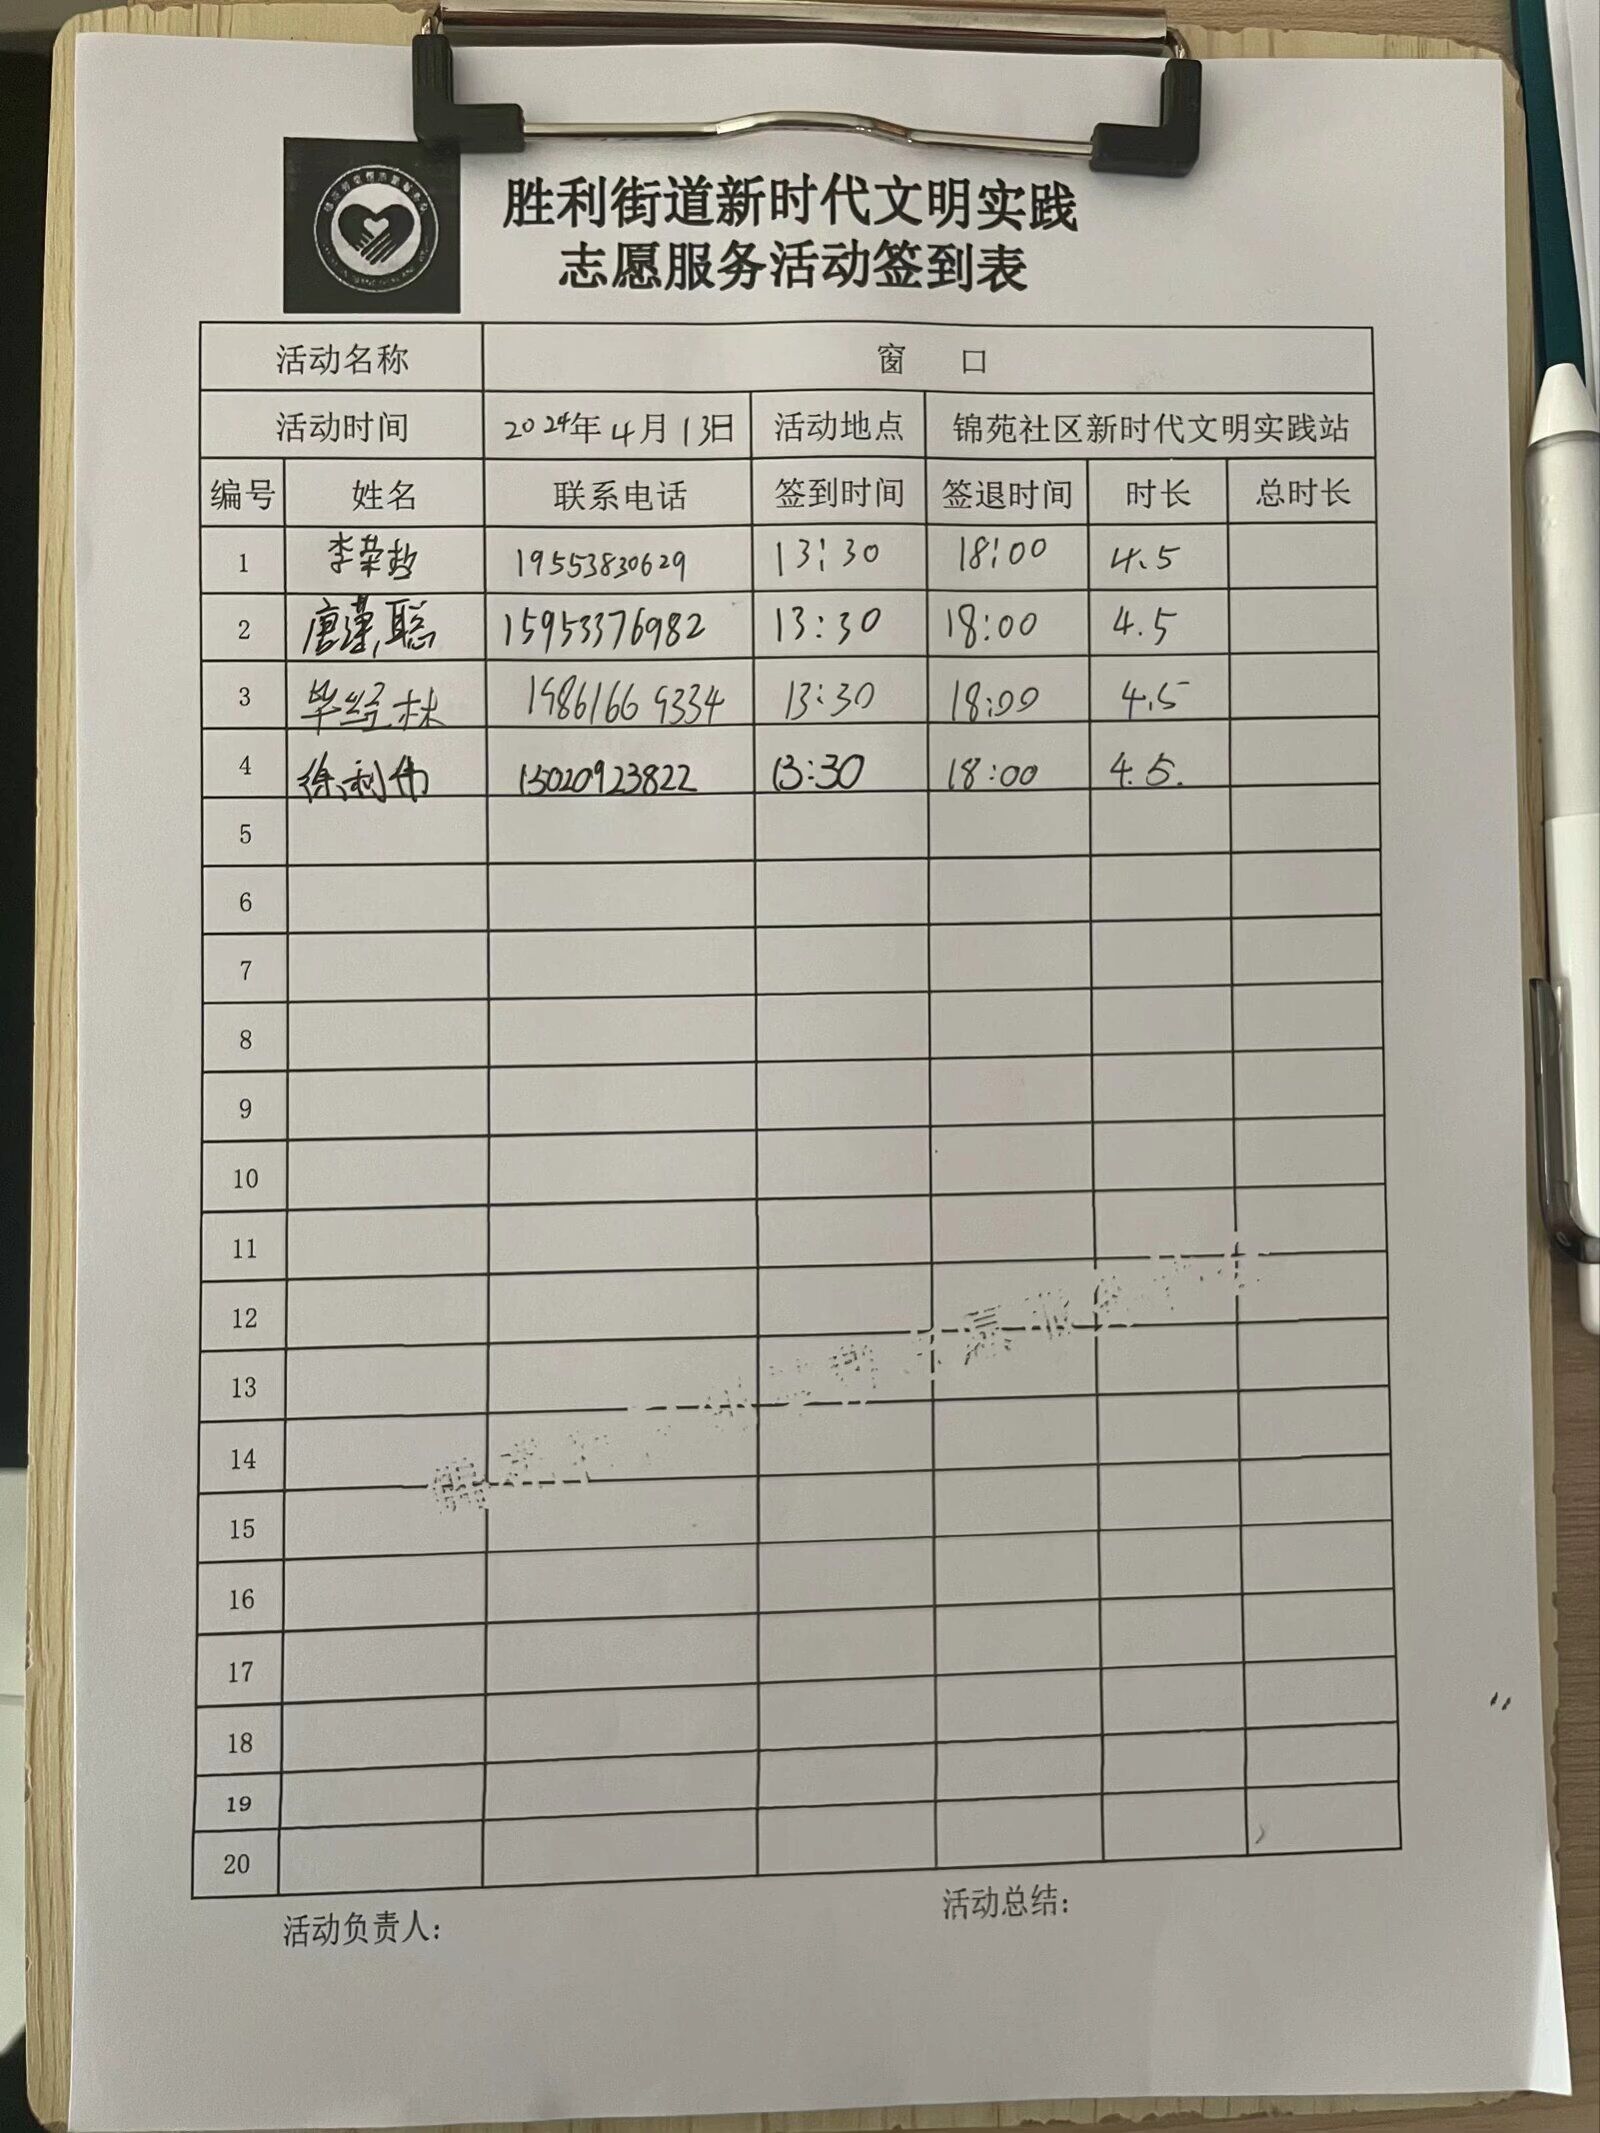 胜利街道新时代文明实践
志愿服务活动签到表
活动名称 窗 口
活动时间 2024年4月13日 活动地点 锦苑社区新时代文明实践站
编号 姓名 联系电话 签到时间 签退时间 时长 总时长
1 李荣哲 19553830629 13:30 18:00 4.5
2 唐瑾聪 15953376982 13:30 18:00 4.5
3 毕经林 19861669334 13:30 18:00 4.5
4 徐利伟 15020923822 13:30 18:00 4.5.
5
6
7
8
9
10
11
12
13
14
15
16
17
18
19
20
活动负责人: 活动总结: